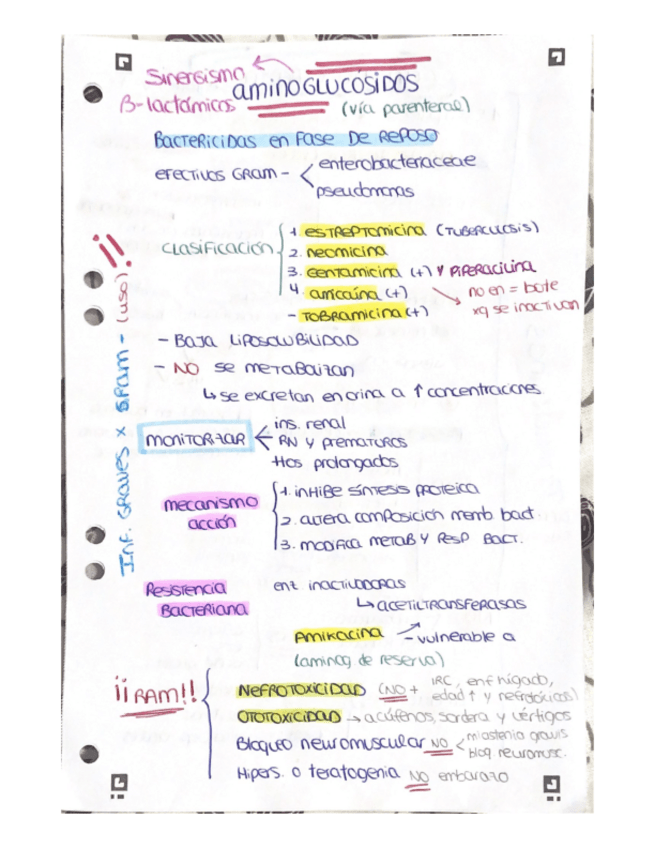 Sinergismo
β-lactámicos
aminoGLUCÓSIDOS
(vía parenteral)
BACTERICIDAS en FASE DE REPOSO
EFECTIVOS GRAM - < enterobacteraceae
pseudomonas
CLASIFICACIÓN
1. ESTREPTOMICINA (TUBERCULOSIS)
2. NEOMICINA
3. GENTAMICINA (+) Y PIPERACILINA
4. AMICACÍNA (+) → no en = bote
xq se inactivan
- TOBRAMICINA (+)
¡¡
Inf. GRAVES x GRAM - (uso)
- BAJA LIPOSOLUBILIDAD
- NO se METABOLIZAN
↳ se excretan en orina a ↑ concentraciones
MONITORIZAR
ins. renal
RN y PREMATUROS
ttos prolongados
mecanismo
acción
1. inHIBE SÍNTESIS PROTEICA
2. altera composición memb bact
3. modifica METAB Y RESP BACT.
Resistencia
BACTERIANA
enz inactivadoras
↳ ACETILTRANSFERASAS
AMIKACINA - vulnerable a
(aminog de reserva)
¡¡RAM!!
NEFROTOXICIDAD (NO + IRC, enf hígado,
edad ↑ y nefrotóxicos)
OTOTOXICIDAD → acúfenos, sordera y vértigos
Bloqueo neuromuscular NO < miastenia gravis
bloq neuromusc.
Hipers. o teratogenia NO embarazo